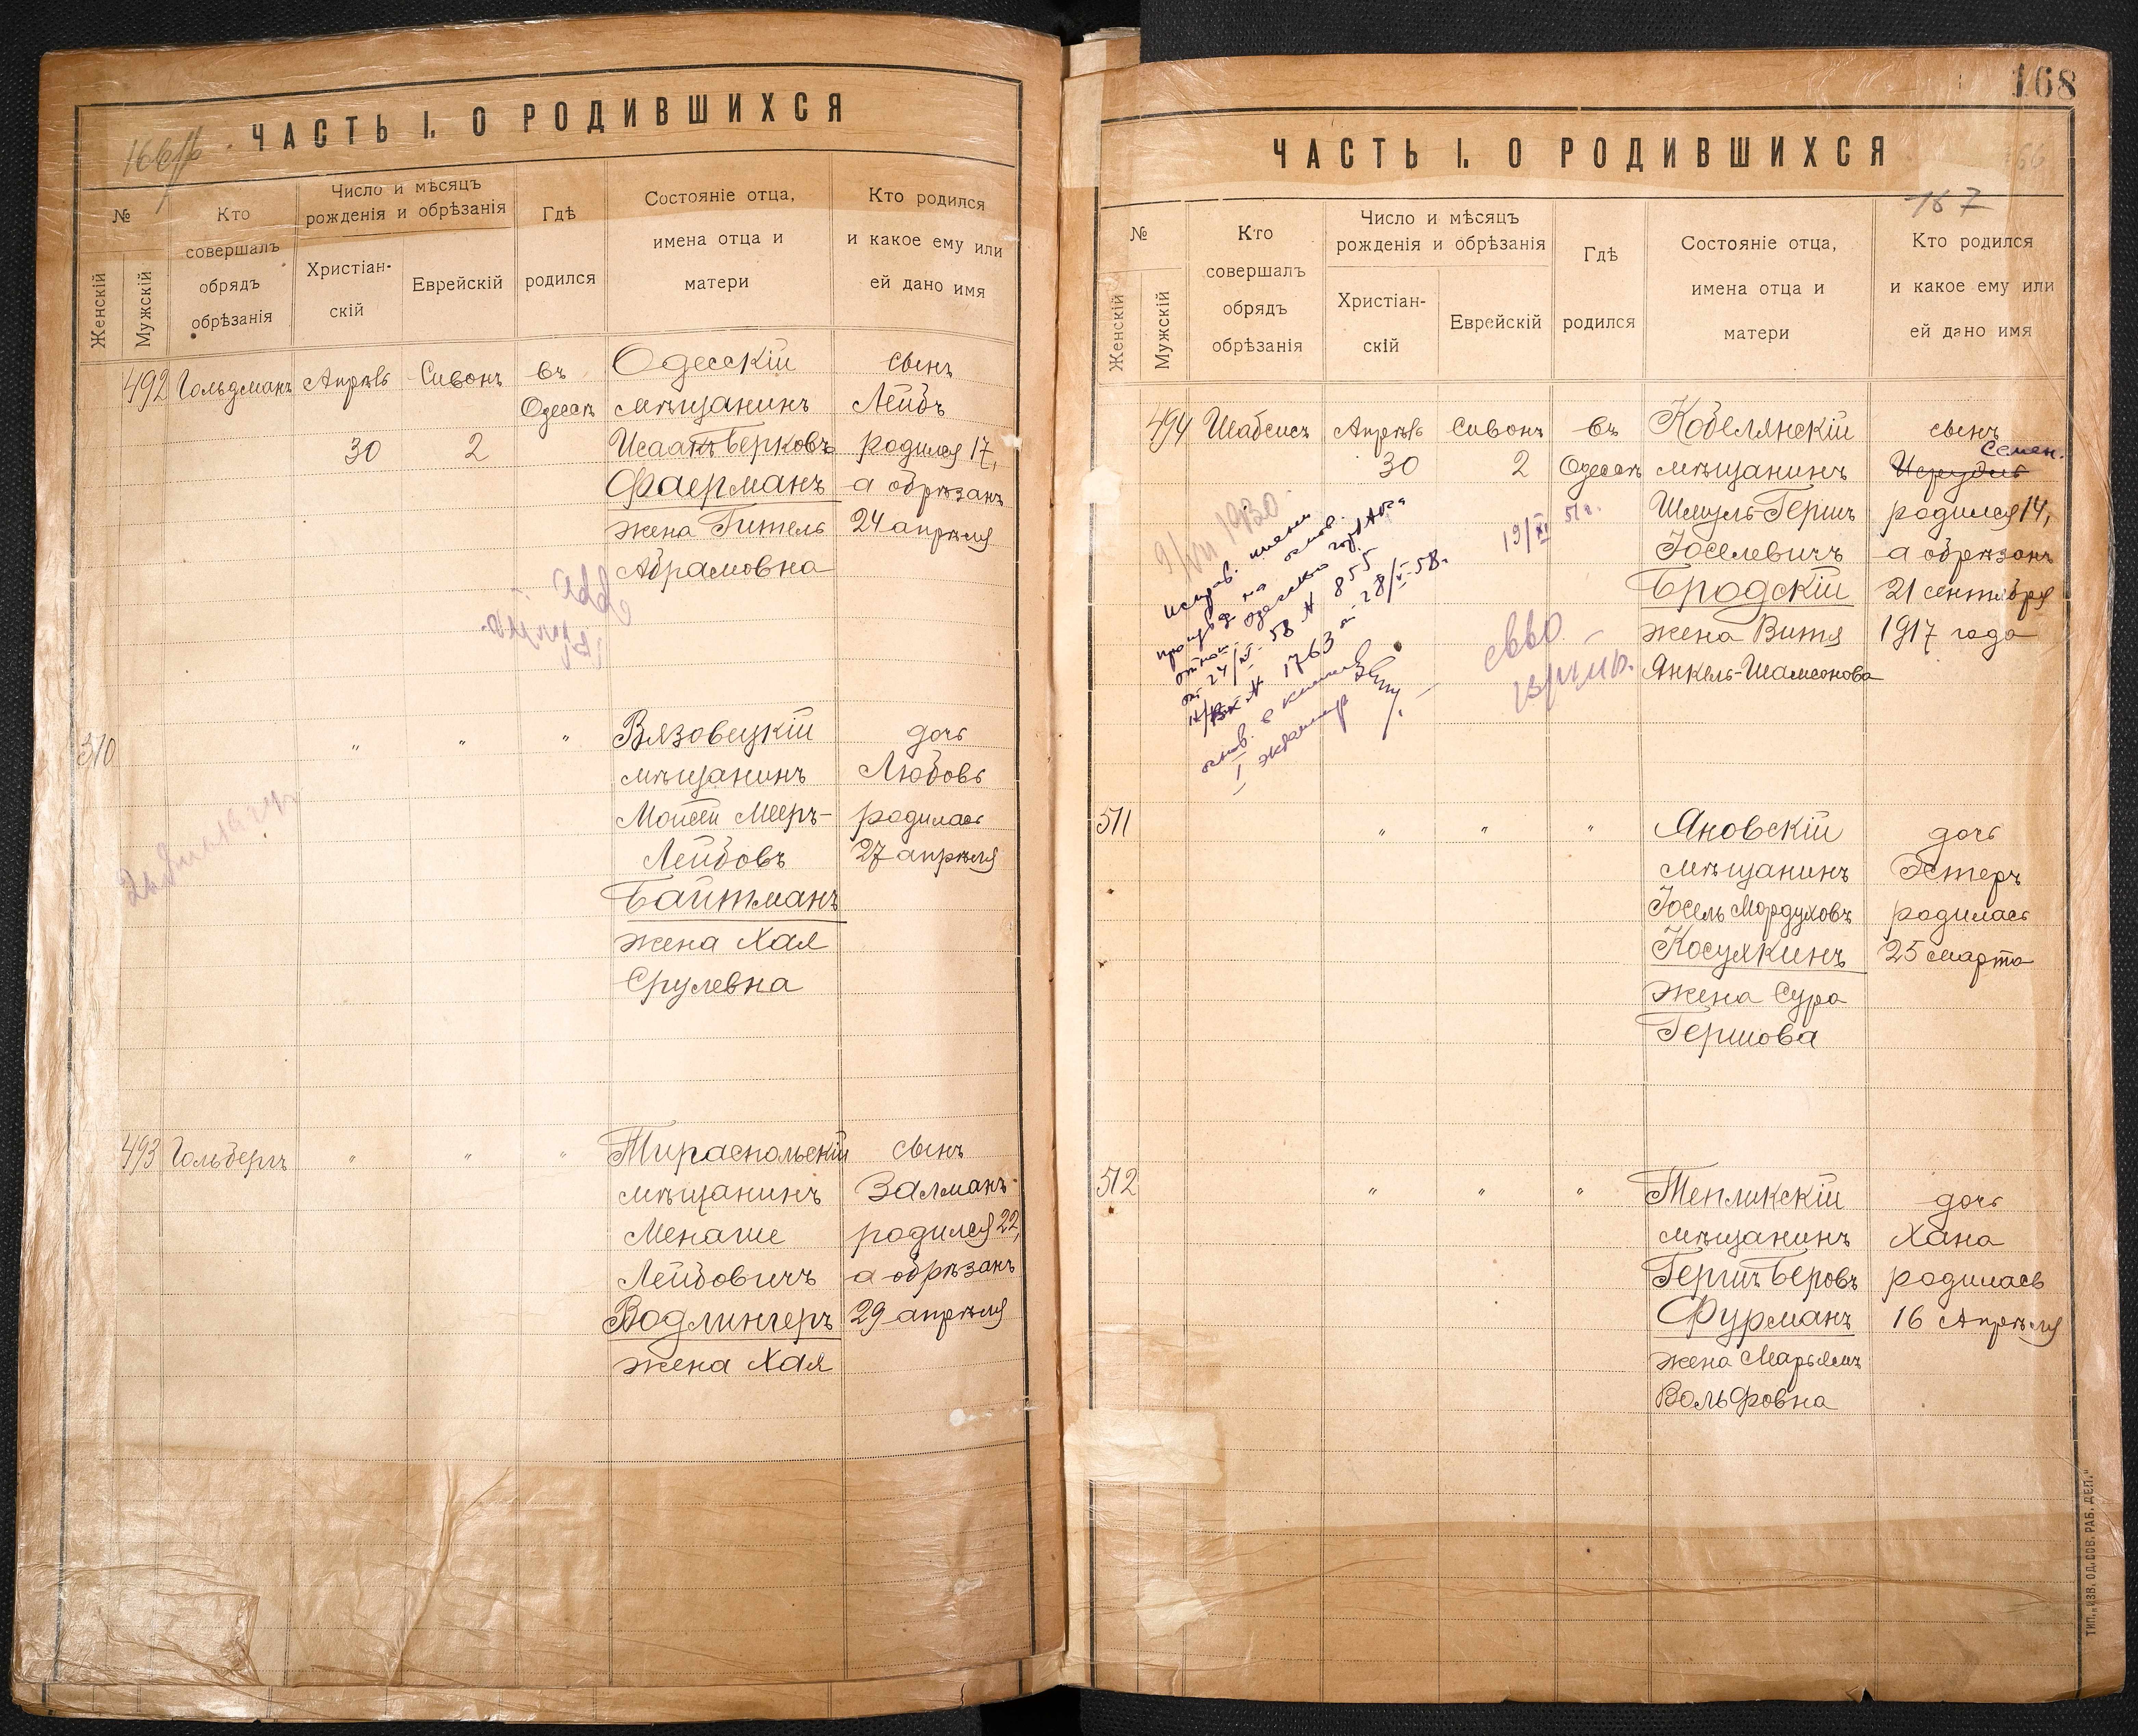 ЧАСТЬ I. О РОДИВШИХСЯ
№
Женскій
Мужскій
Кто
совершалъ
обрядъ
обрѣзанія
Число и мѣсяцъ
рожденія и обрѣзанія
Христіан-
скій
Еврейскій
Гдѣ
родился
Состояніе отца,
имена отца и
матери
Кто родился
и какое ему или
ей дано имя
492 Гольдманъ Апрѣль Сивонъ въ Одесскій сынъ
Одессѣ мѣщанинъ Лейбъ
30 2 Исаакъ Берковъ родился 17,
Фаерманъ а обрѣзанъ
жена Гитель 24 апрѣля
Абрамовна
310 " " " Вязовецкій дочь
мѣщанинъ Любовь
Моисей Мееръ- родилась
Лейбовъ 27 апрѣля
Байтманъ
жена Хая
Срулевна
493 Гольбергъ " " " Тираспольскій сынъ
мѣщанинъ Залманъ
Менаше родился 22,
Лейбовичъ а обрѣзанъ
Водлингеръ 29 апрѣля
жена Хая
168
ЧАСТЬ I. О РОДИВШИХСЯ
167
№
Женскій
Мужскій
Кто
совершалъ
обрядъ
обрѣзанія
Число и мѣсяцъ
рожденія и обрѣзанія
Христіан-
скій
Еврейскій
Гдѣ
родился
Состояніе отца,
имена отца и
матери
Кто родился
и какое ему или
ей дано имя
494 Шабсисъ Апрѣль Сивонъ въ Кобелянскій сынъ
Семен.
30 2 Одессѣ мѣщанинъ
Шмуль-Гершъ родился 14,
Іоселевичъ а обрѣзанъ
Бродскій 21 сентября
жена Витя 1917 года
Янкель-Шамсонова
9/VII 1930
19/XI 51г.
Исправ. имени
на основ.
58 № 855
№ 1763 от 28/V-58.
I экземпляр
511 " " " Яновскій дочь
мѣщанинъ Эстеръ
Іосель Мордуховъ родилась
Косулкинъ 25 марта
жена Сура
Гершова
512 " " " Тепликскій дочь
мѣщанинъ Хана
Гершъ Беровъ родилась
Фурманъ 16 Апрѣля
жена Марьямъ
Вольфовна
ТИП. „ИЗВ. ОД. СОВ. РАБ. ДЕП."